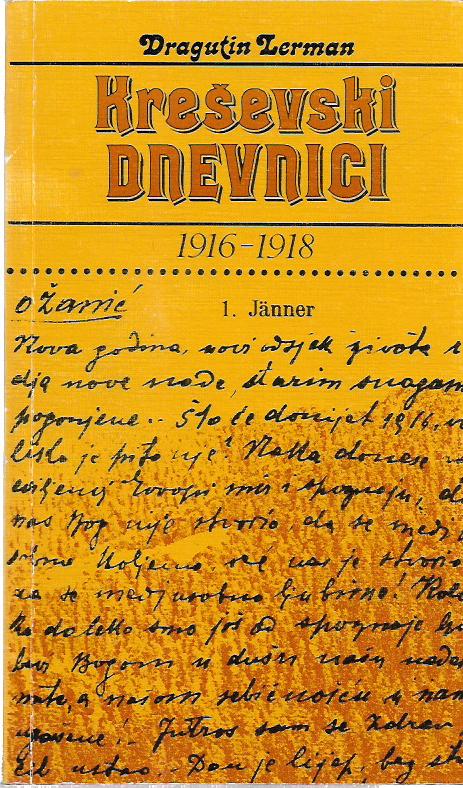 Dragutin Lerman
Kreševski
DNEVNICI
1916-1918
O Žanić
1. Jänner
Nova godina, novi odsjek života r
dja nove nade, starim snagam
pogonjene.. Što će donijet 1916, v
liko je pitanje? Neka donese
Evropi mir i spoznaju, d
nas Bog nije stvorio, da se medj
sobno koljemo, već nas je stvorio
za se medjusobno ljubimo! Kol
ko daleko smo još od spoznaje
bavi Bogom u dušu našu
a našom sebičnošću u nam
ugašene!. Jutros sam se zdrav
ustao.. Dan je lijep, bez